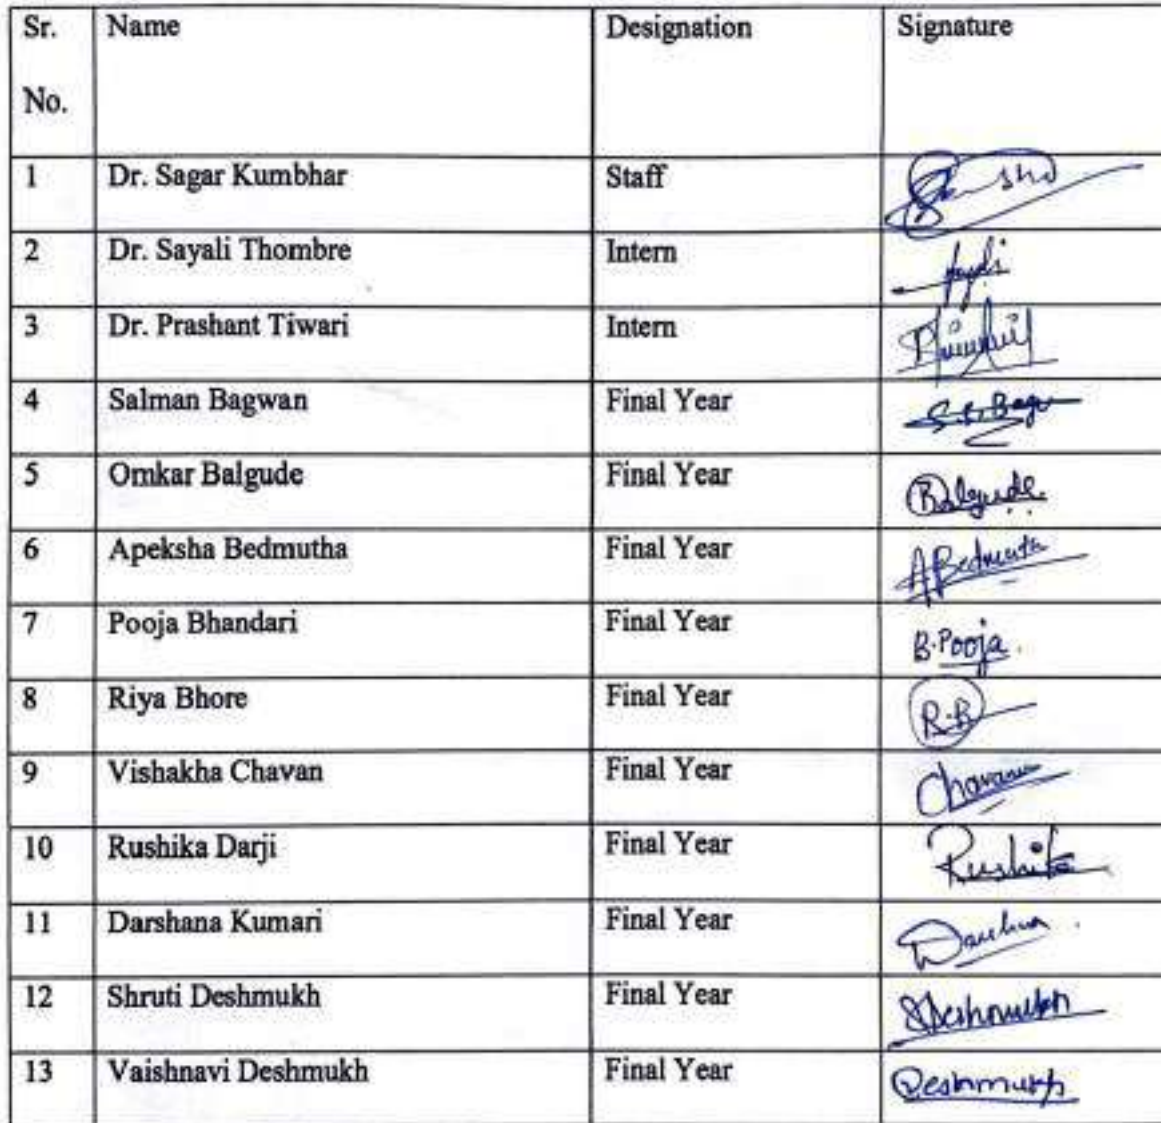 Sr. No. Name Designation Signature
1 Dr. Sagar Kumbhar Staff
2 Dr. Sayali Thombre Intern
3 Dr. Prashant Tiwari Intern
4 Salman Bagwan Final Year
5 Omkar Balgude Final Year Balgude.
6 Apeksha Bedmutha Final Year ABedmutha
7 Pooja Bhandari Final Year B.Pooja.
8 Riya Bhore Final Year R.B
9 Vishakha Chavan Final Year
10 Rushika Darji Final Year Rushika
11 Darshana Kumari Final Year
12 Shruti Deshmukh Final Year SDeshmukh
13 Vaishnavi Deshmukh Final Year Deshmukh